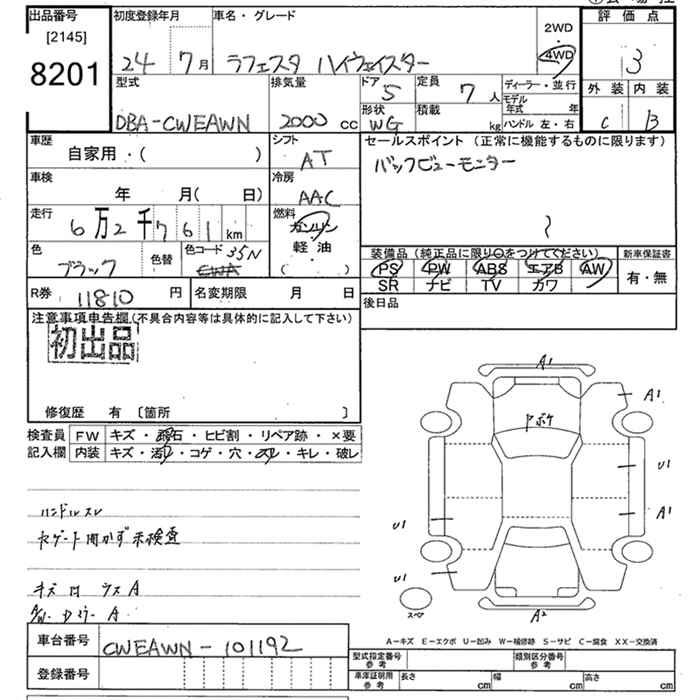 出品番号
[2145]
8201
初度登録年月
24 7月
車名・グレード
ラフェスタ ハイウェイスター
2WD
・
4WD
評価点
3
外装 内装
C B
型式
DBA-CWEAWN
排気量
2000 cc
ドア
5
形状
WG
定員
7 人
積載
kg
ディーラー・並行
モデル年式 年
ハンドル 左・右
車歴
自家用・( )
シフト
AT
セールスポイント (正常に機能するものに限ります)
バックビューモニター
車検
年 月( 日)
冷房
AAC
走行
6万2千761km
燃料
ガソリン
・
軽油
( )
色
ブラック
色替
色コード 35N
CWA
装備品 (純正品に限り○をつけてください)
PS PW ABS エアB AW
SR ナビ TV カワ
新車保証書
有・無
R券
11810 円
名変期限 月 日
後日品
注意事項申告欄(不具合内容等は具体的に記入して下さい)
初出品
修復歴 有 〔箇所 〕
検査員記入欄
FW キズ・飛石・ヒビ割・リペア跡・×要
内装 キズ・汚れ・コゲ・穴・スレ・キレ・破レ
ハンドルスレ
セゲート開かず未検査
A1
A1
U1
A1
U1
U1
A2
スペア
A-キズ E-エクボ U-凹み W-補修跡 S-サビ C-腐食 XX-交換済
車台番号
CWEAWN-101192
登録番号
型式指定番号 参考
類別区分番号 参考
車庫証明用 参考
長さ cm
幅 cm
高さ cm